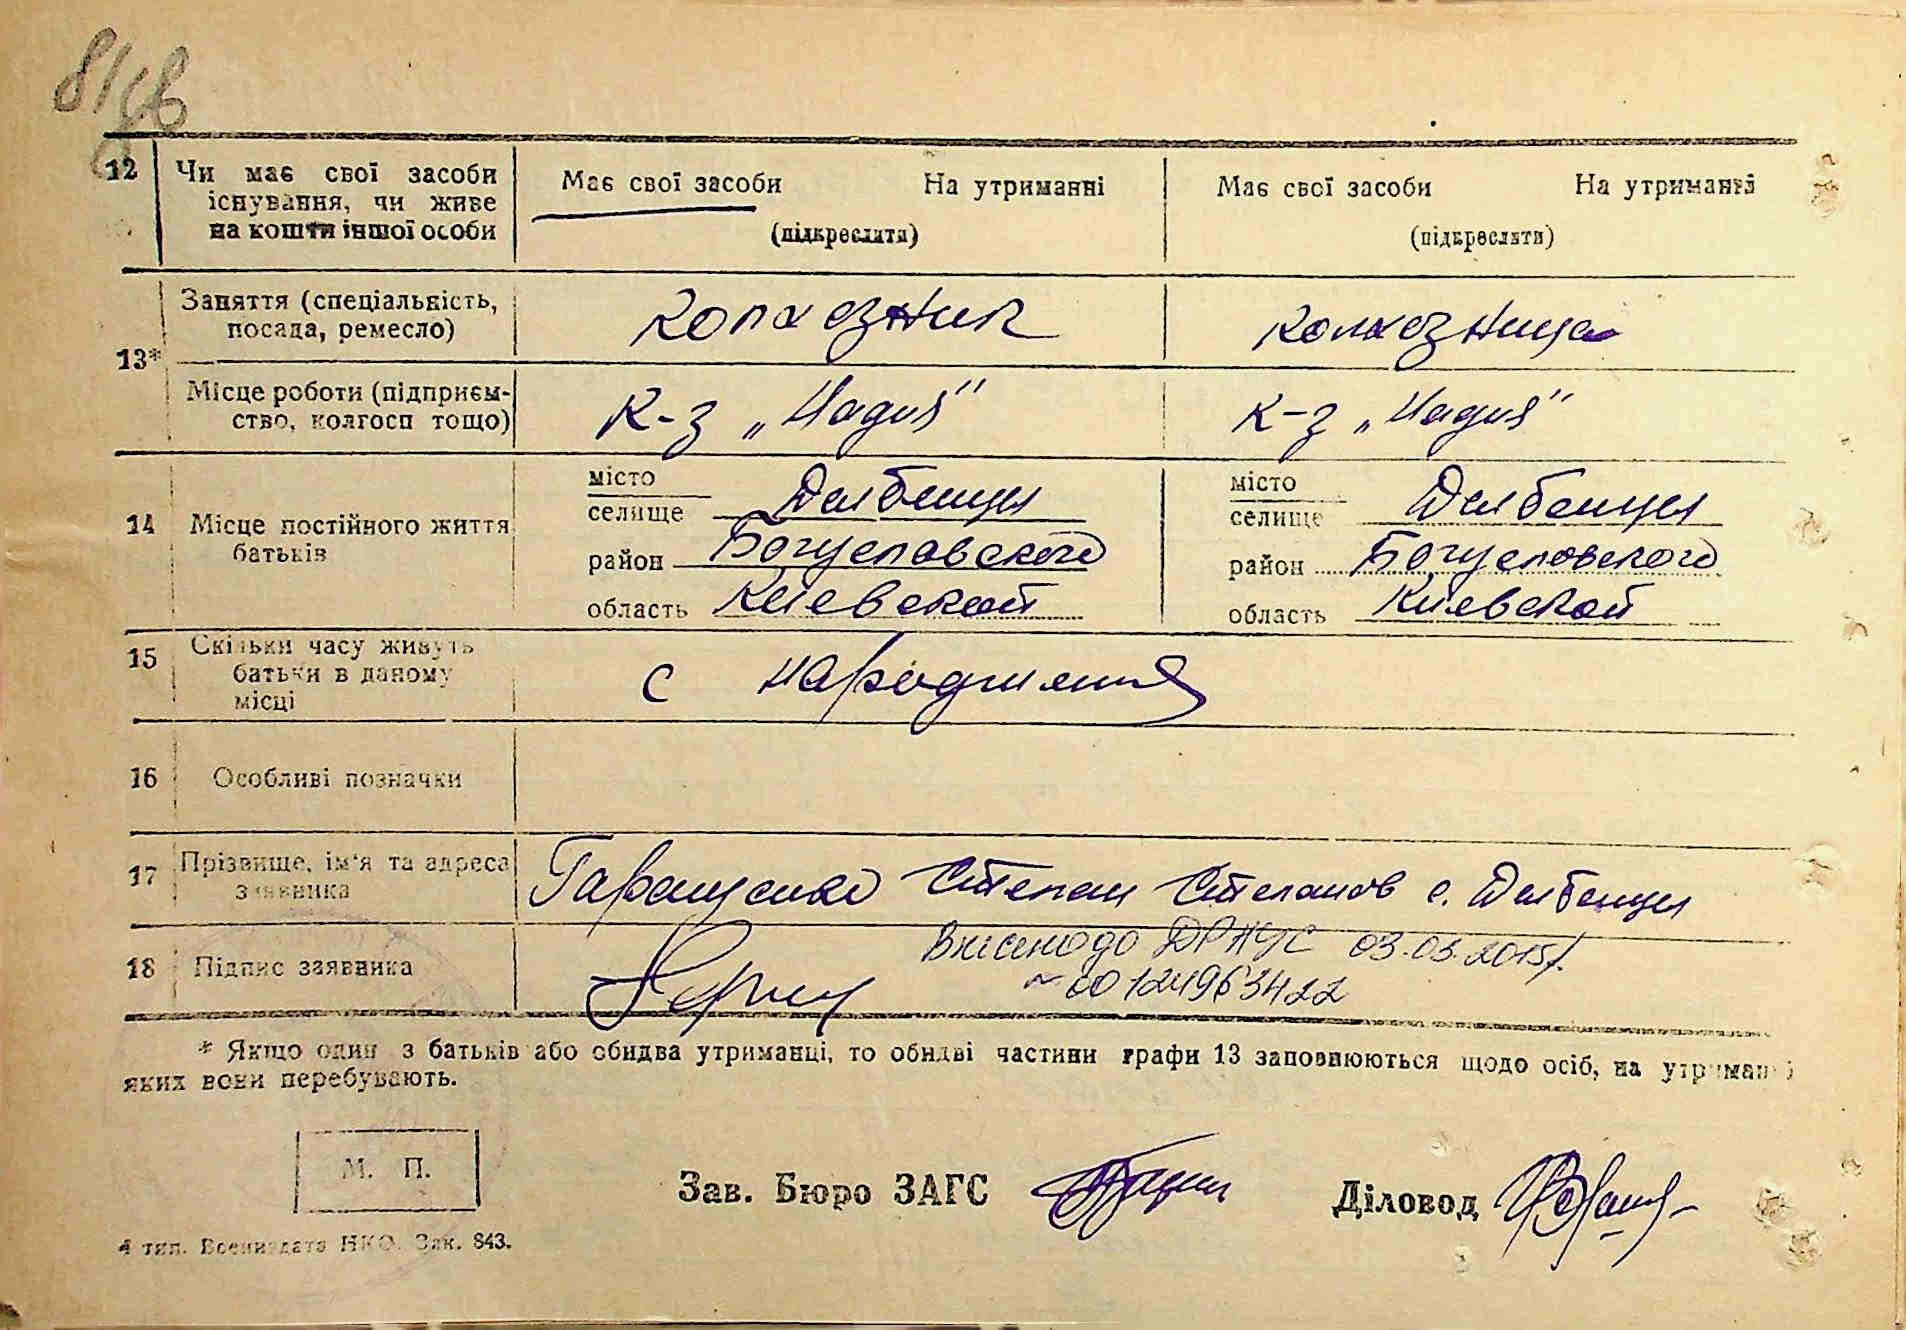 12 Чи має свої засоби існування, чи живе на кошти іншої особи
Має свої засоби На утриманні (підкреслити)
Має свої засоби На утриманні (підкреслити)
13* Заняття (спеціальність, посада, ремесло)
колхозник
колхозница
Місце роботи (підприємство, колгосп тощо)
к-з „Надия"
к-з „Надия"
14 Місце постійного життя батьків
місто
селище Дыбенцы
район Богуславского
область Киевской
місто
селище Дыбенцы
район Богуславского
область Киевской
15 Скільки часу живуть батьки в даному місці
с народження
16 Особливі позначки
17 Прізвище, ім'я та адреса заявника
Гаращенко Степан Степанов с. Дыбенцы
18 Підпис заявника
Внесено до ДРАЦС 03.03.2015р.
00124963422
* Якщо один з батьків або обидва утриманці, то обидві частини графи 13 заповнюються щодо осіб, на утриманні
яких вони перебувають.
М. П.
Зав. Бюро ЗАГС
Діловод
4 тип. Воениздата НКО. Зак. 843.